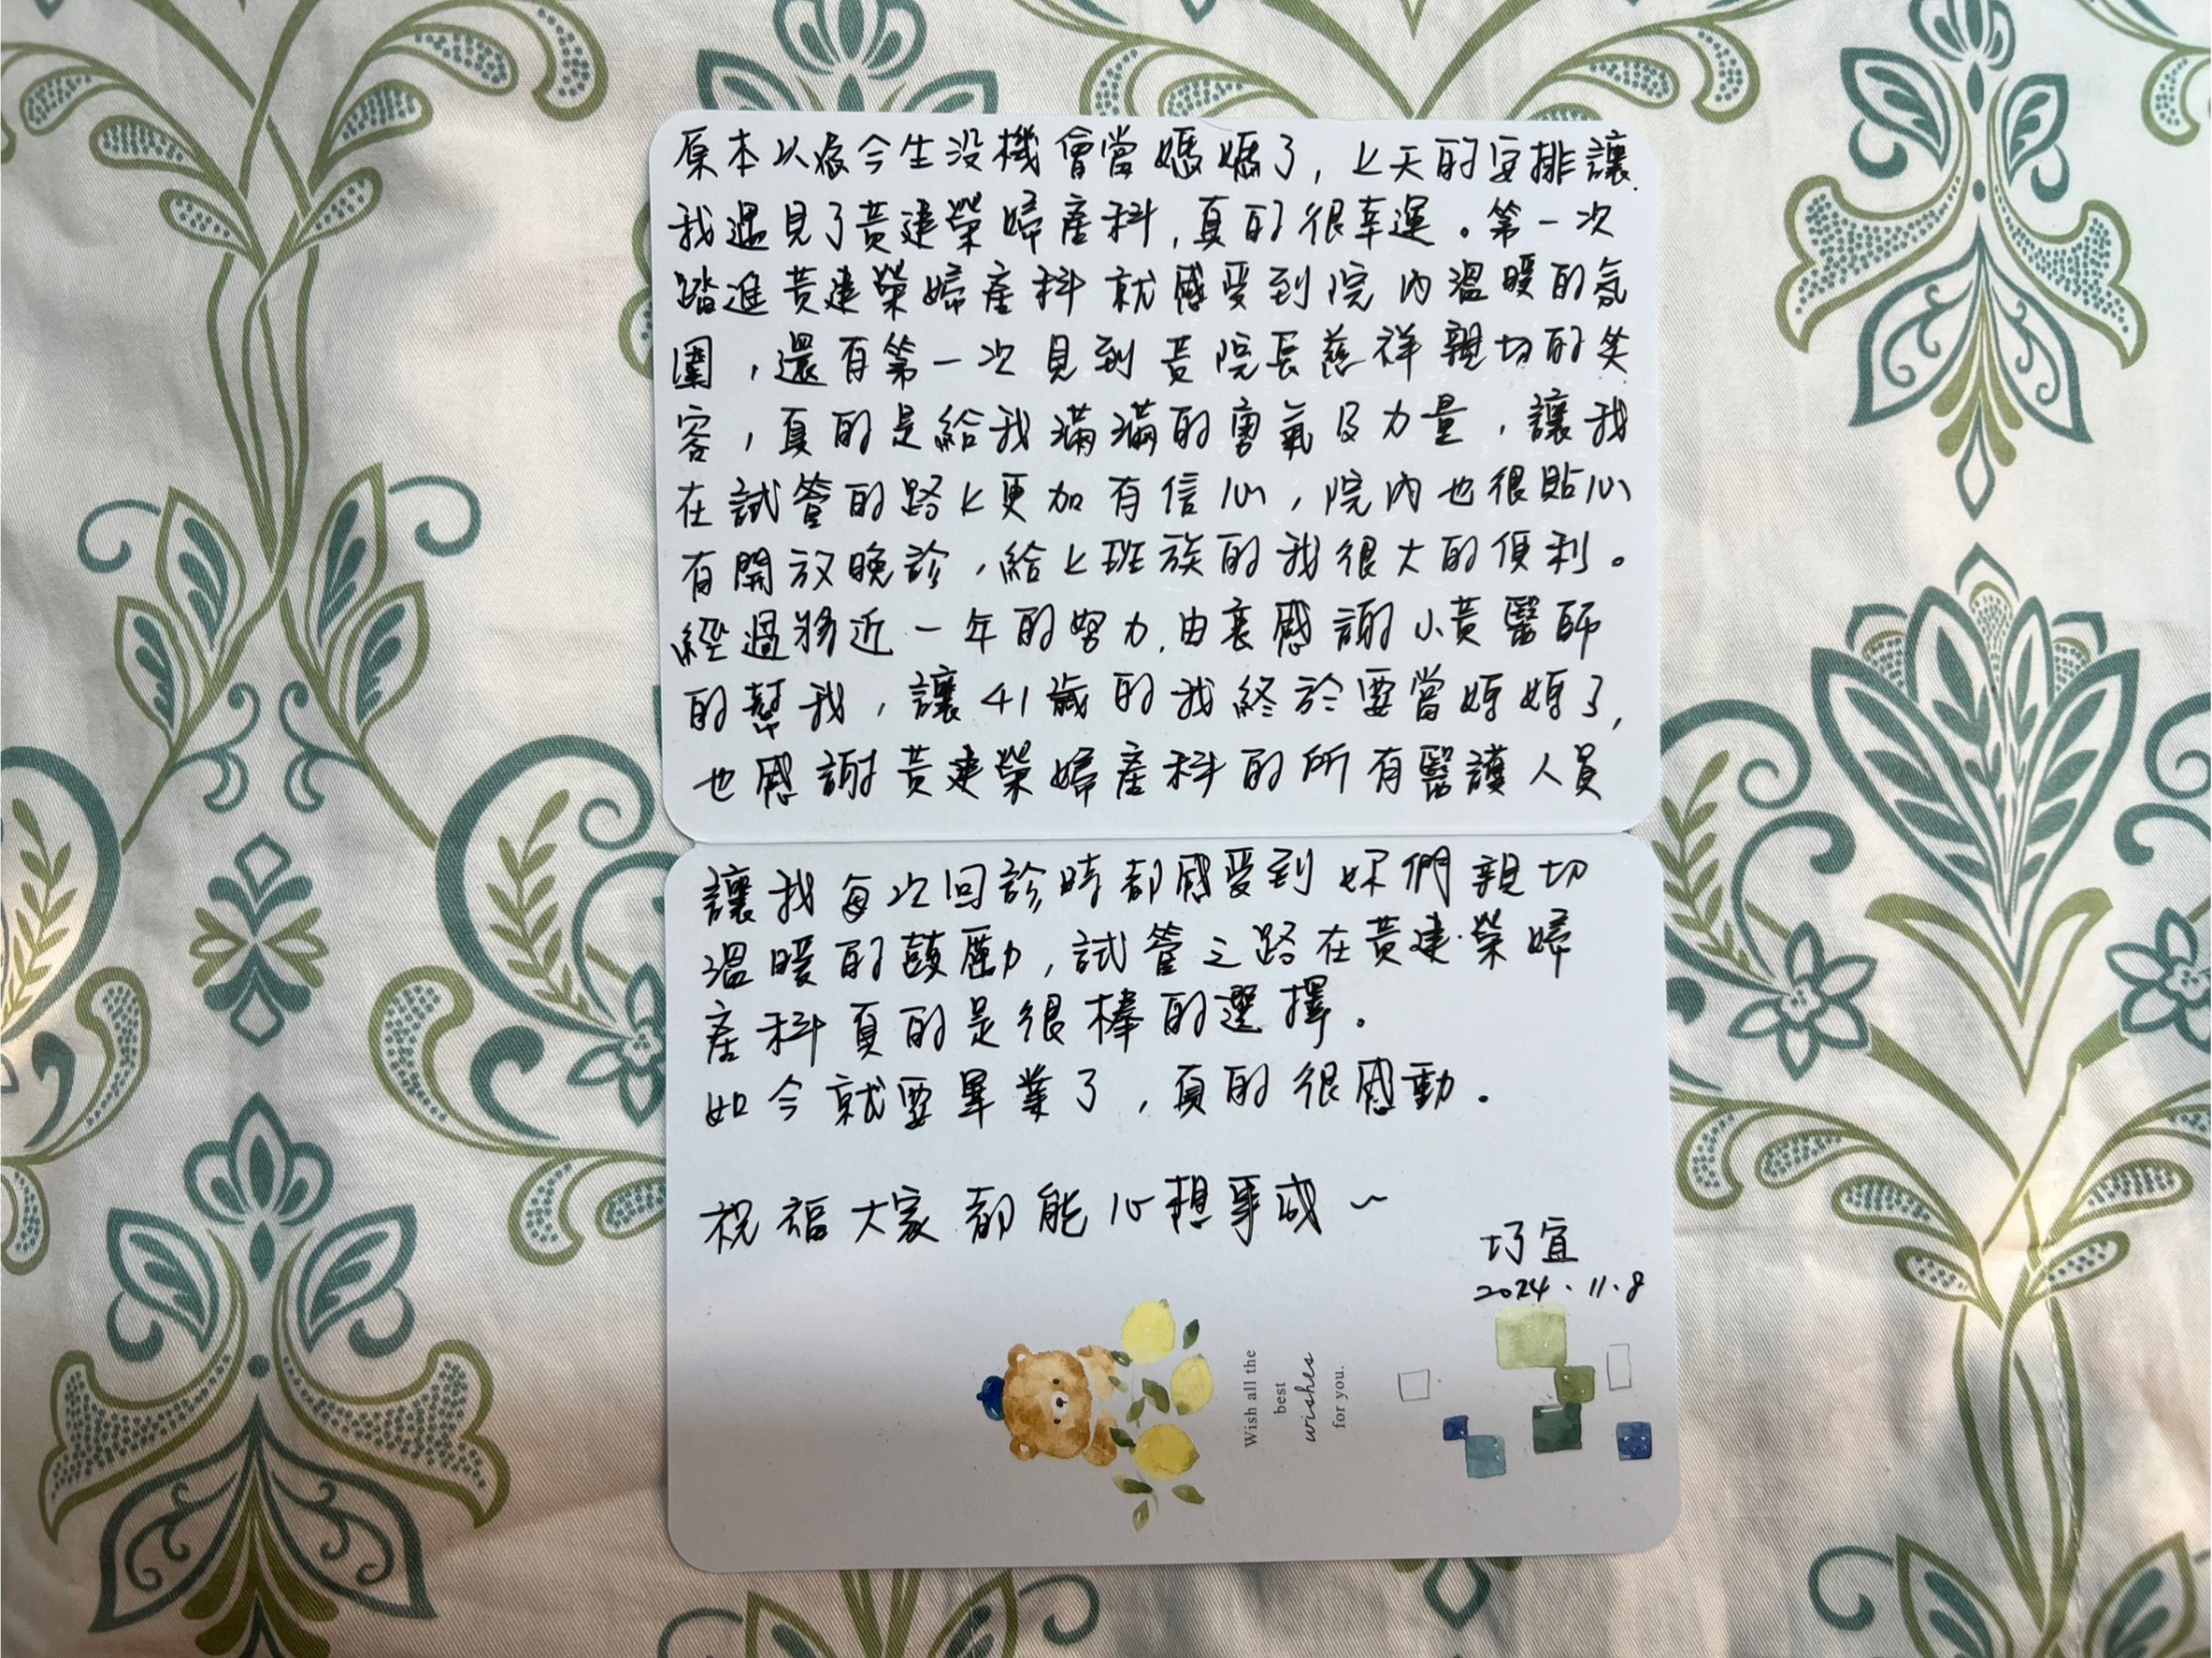 原本以為今生沒機會當媽媽了，上天的安排讓
我遇見了黃建榮婦產科，真的很幸運。第一次
踏進黃建榮婦產科就感受到院內溫暖的氛
圍，還有第一次見到黃院長慈祥親切的笑
容，真的是給我滿滿的勇氣及力量，讓我
在試管的路上更加有信心，院內也很貼心
有開放晚診，給上班族的我很大的便利。
經過將近一年的努力，由衷感謝小黃醫師
的幫我，讓41歲的我終於要當媽媽了，
也感謝黃建榮婦產科的所有醫護人員
讓我每次回診時都感受到妳們親切
溫暖的鼓勵，試管之路在黃建榮婦
產科真的是很棒的選擇。
如今就要畢業了，真的很感動。
祝福大家都能心想事成～
巧宜
2024.11.8
Wish all the
best
wishes
for you.